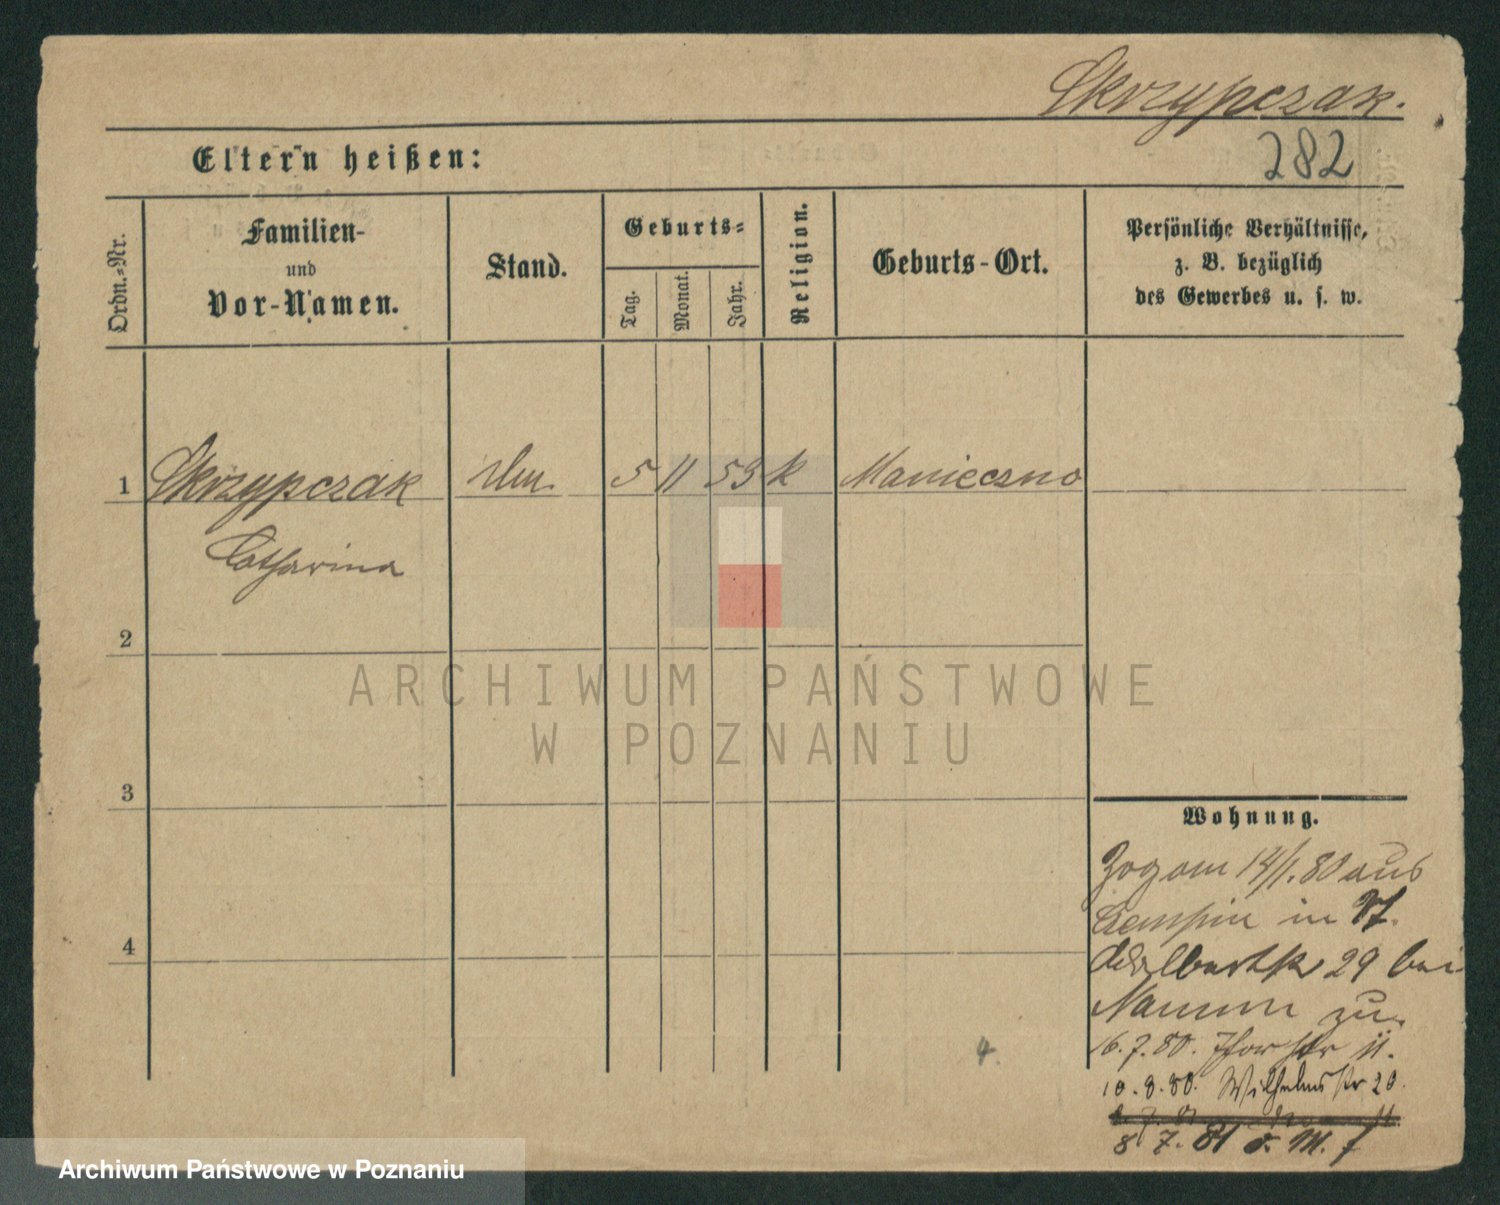 Skrzypczak.
282
Eltern heißen:
Ordn.-Nr.
Familien-
und
Vor-Namen.
Stand.
Geburts-
Tag.
Monat.
Jahr.
Religion.
Geburts-Ort.
Persönliche Verhältnisse,
z. B. bezüglich
des Gewerbes u. s. w.
1 Skrzypczak 5 11 53 k Manieczno
Catharina
2
ARCHIWUM PAŃSTWOWE
W POZNANIU
3
4
Wohnung.
Zog am 14/1. 80 aus
Czempin in St.
Adalbertstr 29 bei
Namm zu.
16. 7. 80. Thorstr 11.
10. 8. 80. Wilhelmstr 20.
8. 7. 81 v. M. f
4.
Archiwum Państwowe w Poznaniu